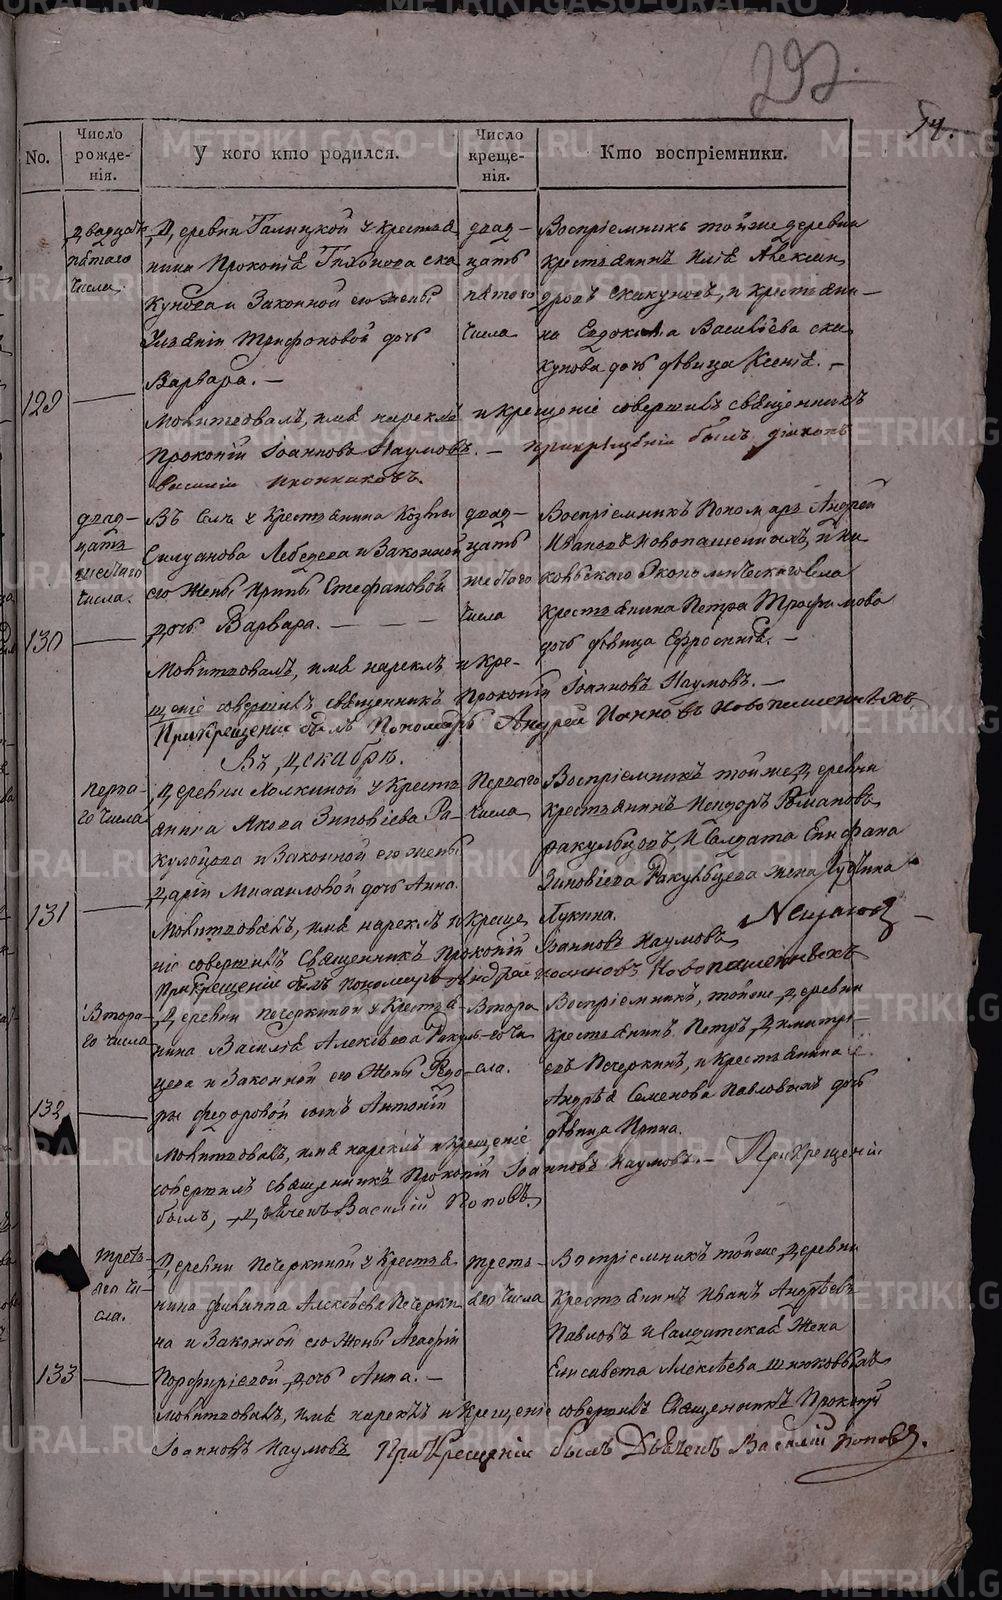 292.
54.
No.
Число рожденія.
У кого кто родился.
Число крещенія.
Кто воспріемники.
129
двадцать
пятаго
числа.
Деревни Галицкой у крестья
нина Прокопія Тихонова Ска
кунова и Законной его жены
Трифоновой дочь
Варвара. —
двад-
цать
пятого
числа
Воспріемникъ тойже деревни
крестьянинъ Илія Алексан
дровъ Скакуновъ, и крестьяни-
на Василіева Ска
кунова дочь дѣвица Ксенія. —
Молитвовалъ, имя нарекъ и крещеніе совершилъ священникъ
Прокопій Іоанновъ Наумовъ. — при крещеніи былъ діаконъ
Василій Иконниковъ.
130
двад-
цать
шестаго
числа.
Въ Селѣ у Крестьянина Козмы
Силуанова Лебедева и Законной
его Жены Ирины Стефановой
дочь Варвара. — — —
двад-
цать
шестаго
числа
Воспріемникъ Пономарь Андрей
Ивановъ Новопашенныхъ, и Ни
кольскаго Экономическаго села
крестьянина Петра Трофимова
дочь дѣвица Ефросинія. —
Молитвовалъ, имя нарекъ и Кре-
щеніе совершилъ священникъ Прокопій Іоанновъ Наумовъ. —
При Крещеніи былъ Пономарь Андрей Іоанновъ Новопашенныхъ
Въ, декабрѣ.
131
перва-
го числа
Деревни Лалкиной у Кресть
янина Якова Зиновіева Ра-
кульцова и Законной его жены
Даріи Михаиловой дочь Анна.
Перваго
числа
Воспріемникъ тойже деревни
Крестьянинъ Романовъ
ракульцовъ и Салдата Епифана
Зиновіева Ракульцева жена
Лукина.
Молитвовалъ, имя нарекъ и Креще
ніе совершилъ Священникъ Прокопій Іоанновъ Наумовъ
При крещеніи былъ пономарь Андрей Іоанновъ Новопашенныхъ
132
Втора-
го числа
Деревни Печеркиной у Крестья-
нина Василія Алексѣева Ракуль-
цева и Законной его Жены Ѳедо-
ры Федоровой сынъ Антоній
Втора
го чи
сла.
Воспріемникъ, тойже деревни
крестьянинъ Петръ Димитрі-
евъ Печеркинъ, и Крестьянина
Андрѣя Семенова Павловыхъ дочь
дѣвица Ирина.
Молитвовалъ, имя нарекъ и Крещеніе
совершилъ священникъ Прокопій Іоанновъ Наумовъ. — При Крещеніи
былъ, Дьячекъ Василій Поповъ.
133
треть-
яго чи-
сла.
Деревни Печеркиной у Крестья
нина Филиппа Алексѣева Печерки
на и Законной его Жены Агафіи
Порфиріевой дочь Анна. —
треть-
яго числа
Воспріемникъ тойже деревни
Крестьянинъ Иванъ Андрѣевъ
Павловъ и Салдатская Жена
Елисавета Алексѣева
Молитвовалъ, имя нарекъ и Крещеніе совершилъ Священникъ Прокопій
Іоанновъ Наумовъ При Крещеніи былъ Дьячекъ Василій Поповъ.
METRIKI.GASO-URAL.RU